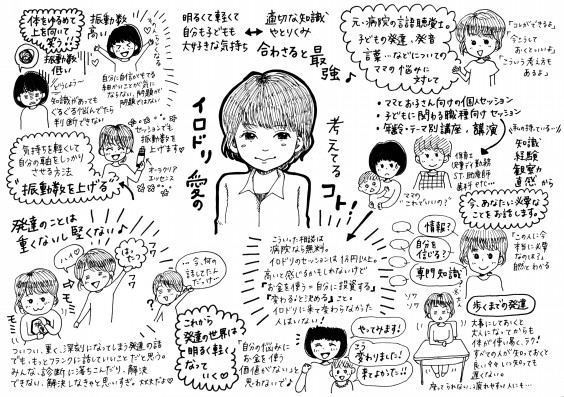 体をゆるめて
上を向いて
笑う!!
振動数
高い
振動数
低い
どうしよう…
知識があっても
ぐるぐる悩んでたら
判断できない
自分に自信がもてる
細かいことが気に
ならない。問題が
問題でなくなる
セッションでも
振動数を
上げます
オーラクリア
エッセンス
気持ちを軽くして
自分の軸をしっかり
させる方法
"振動数を上げる"
明るくて軽くて
自分も子どもも
大好きな気持ち
↔
適切な知識
やとりくみ
合わせると最強♪
イロドリ 愛の
考えてるコト!
元・病院の言語聴覚士。
子どもの発達、発音
言葉…などについての
ママの悩みに
対して
「コレができるよ」
「今こうして
おくといいよ」
「こういう考え方も
あるよ」
・ママとお子さん向けの個人セッション
・子どもに関わる職種向けセッション
・年齢・テーマ別 講座・講演
保育士
児発デイ勤務
ST. 助産師
歯科 etc…
ママの
"これでいいの?"
私の持っている…
知識
経験
観察力
直感 から
今、あなたに必要な
ことをお話します。
情報?
自分を
信じる?
専門知識
「この人に今
本当に必要
なのは?」
自然とわかる
発達のことは
重くないし 堅くない♪
ハイ♡
はっ
やっ
…今、何の
話してたん
だっけ…
ついつい、重く、深刻になってしまう発達の話
でも、もっとフランクに話していいことだと思う。
みんな、診断に落ちこんだり、解決
できない、解決しなきゃと思いすぎ。大丈夫だよ♡
こういった相談は
病院なら無料。
イロドリのセッションは1万円以上。
高いと感じるかもしれないけど
『お金を使う=自分に投資する』
『変わると決める』こと。
イロドリに来て変わらなかった
人はいない!
これから
発達の世界は
明るく軽く
なって
いく♡
「自分の悩みに
お金を使う
価値がない」と
思わないで♪
やってみます!
こう
変わりました!
来てよかった!!
ソワ
ソワ
歩くまでの発達
大事にしておくと
大人になってからも
体が使い易く、ラク!
すべての人が知っておくと
良い♡今から知っても
遅くない。
座ってられない、疲れやすい人にも…